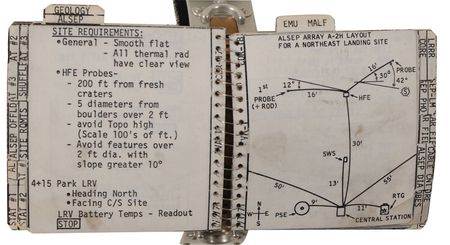 GEOLOGY
ALSEP
SITE REQUIREMENTS:
•General - Smooth flat
- All thermal rad
have clear view
•HFE Probes-
- 200 ft from fresh
craters
- 5 diameters from
boulders over 2 ft
- avoid Topo high
(Scale 100's of ft.)
- Avoid features over
2 ft dia. with
slope greater 10°
4+15 Park LRV
•Heading North
•Facing C/S Site
LRV Battery Temps - Readout
STOP
EMU MALF
ALSEP ARRAY A-2H LAYOUT
FOR A NORTHEAST LANDING SITE
1st
PROBE
(+ ROD)
12°
16'
16'
30°
PROBE
42°
S
HFE
30'
SWS
13'
50'
55'
N
W
E
S
PSE
9'
11'
RTG
CENTRAL STATION